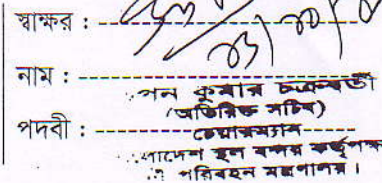 স্বাক্ষর :
নাম :
পন কুমার চক্রবর্তী
(অতিরিক্ত সচিব)
পদবী :
চেয়ারম্যান
লাদেশ স্থল বন্দর কর্তৃপক্ষ
পরিবহন মন্ত্রণালয়।